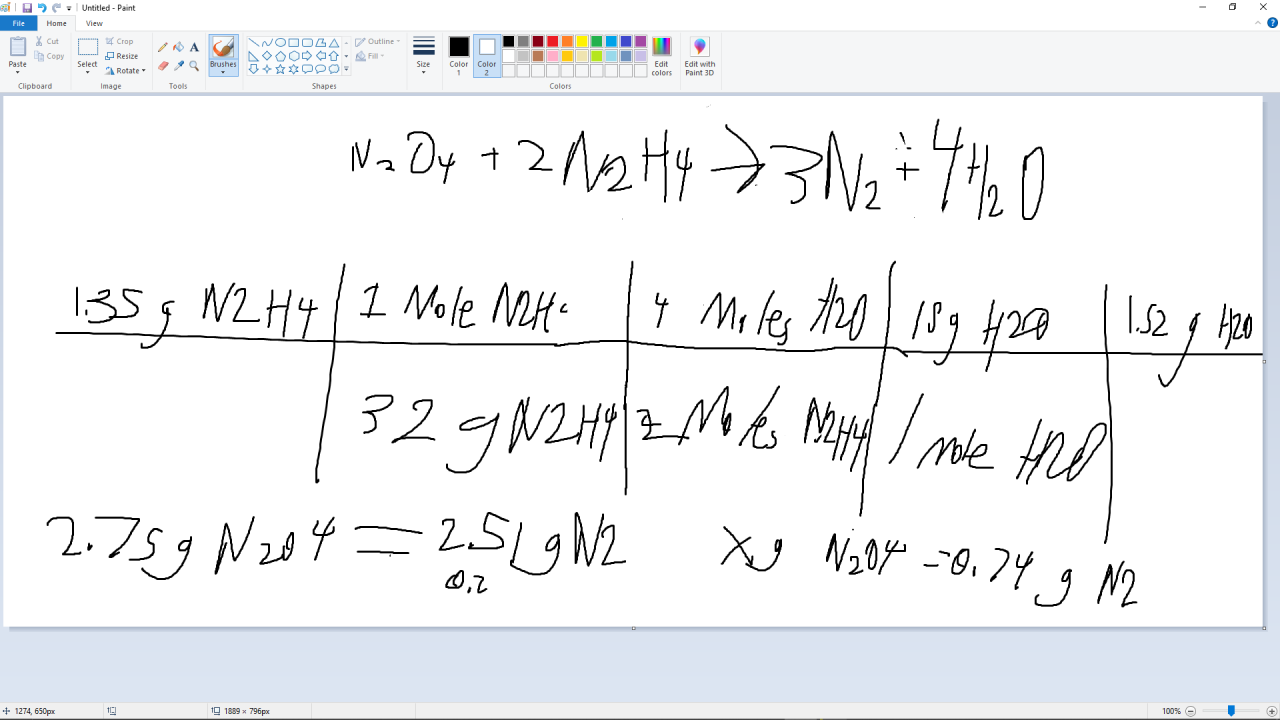 Untitled - Paint
File Home View
Paste Cut Copy Clipboard
Select Crop Resize Rotate Image
Tools
Brushes
Shapes Outline Fill
Size
Color 1 Color 2 Edit colors Colors
Edit with Paint 3D
N2O4 + 2N2H4 → 3N2 + 4H2O
1.35 g N2H4 | 1 Mole N2H | 4 Moles H2O | 18g H2O | 1.52 g H2O
32 g N2H4 | 2 Moles N2H4 | 1 mole H2O
2.75 g N2O4 = 2.51 g N2 X g N2O4 = 0.74 g N2
0.2
1274, 650px 1889 × 796px 100%